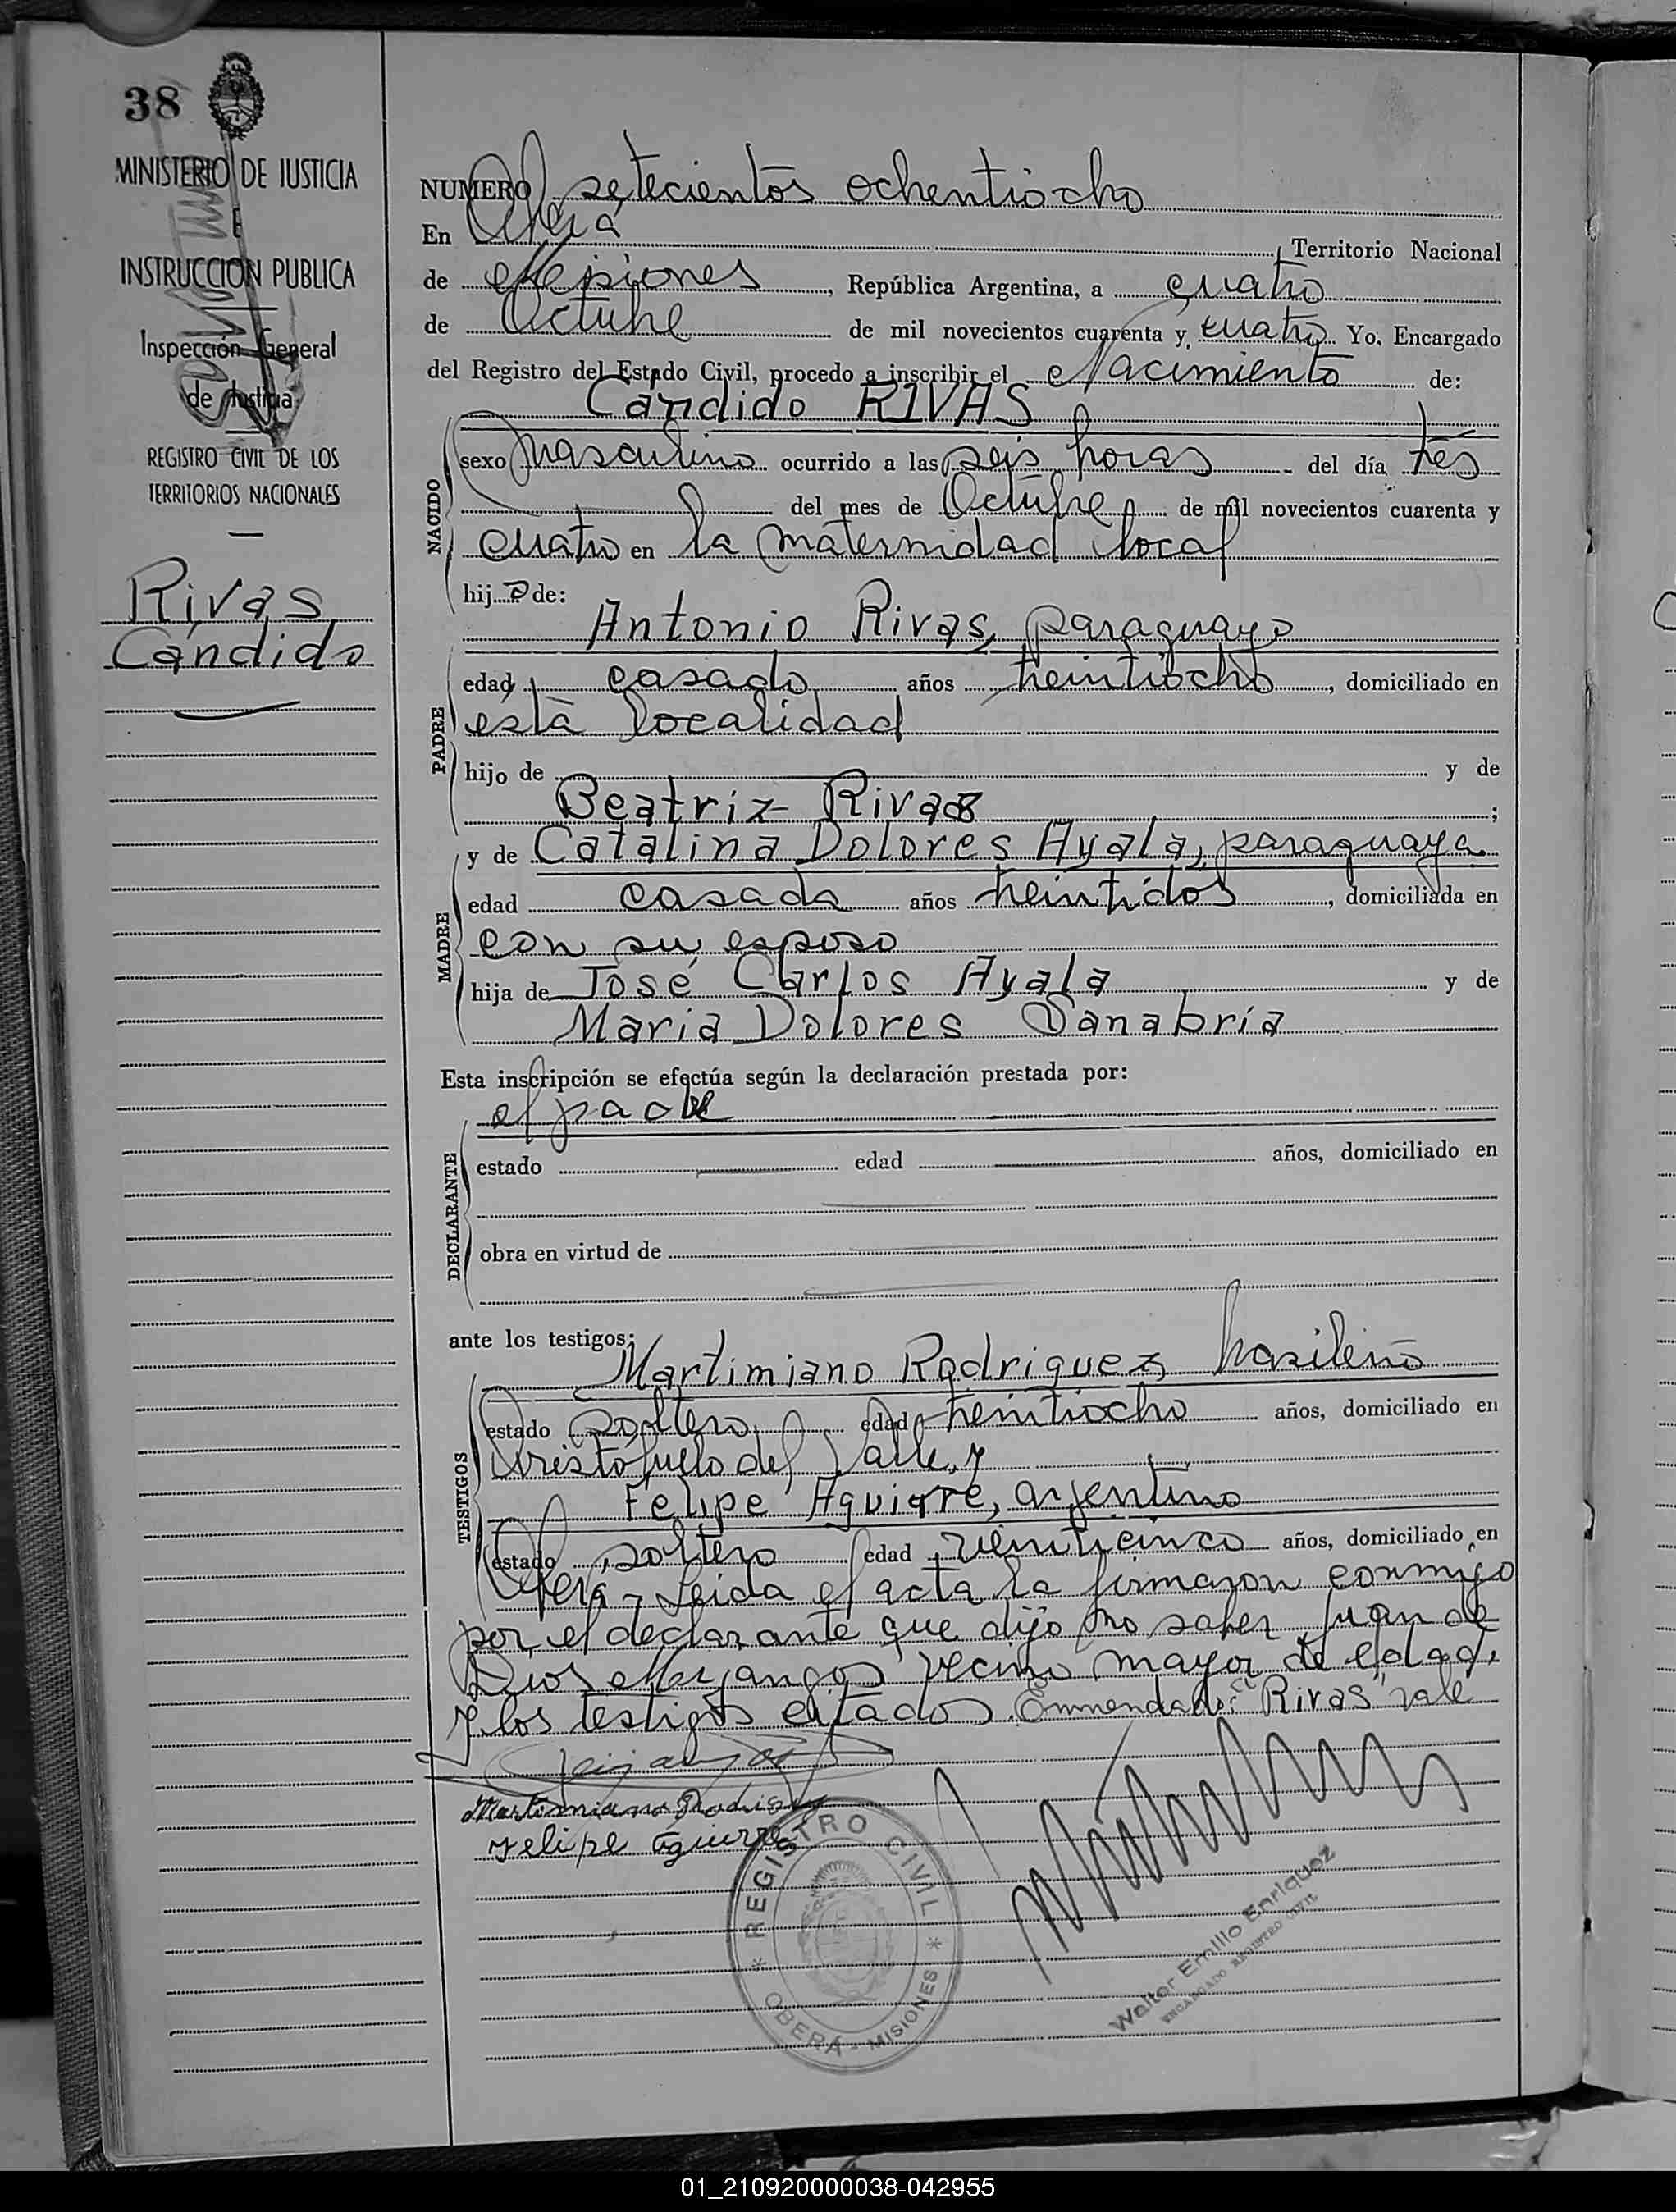 38
MINISTERIO DE JUSTICIA
E
INSTRUCCION PUBLICA
Inspección General
de Justicia
REGISTRO CIVIL DE LOS
TERRITORIOS NACIONALES
Rivas
Cándido
NUMERO setecientos ochentiocho
En Oberá, Territorio Nacional
de Misiones, República Argentina, a cuatro
de Octubre de mil novecientos cuarenta y cuatro Yo, Encargado
del Registro del Estado Civil, procedo a inscribir el Nacimiento de:
Candido RIVAS
NACIDO
sexo masculino ocurrido a las seis horas del día tres
del mes de Octubre de mil novecientos cuarenta y
cuatro en la maternidad local
hijo de:
Antonio Rivas, paraguayo
PADRE
edad casado años treintiocho, domiciliado en
esta localidad
hijo de y de
Beatriz Rivas;
MADRE
y de Catalina Dolores Ayala, paraguaya
edad casada años treintidos, domiciliada en
con su esposo
hija de José Carlos Ayala y de
Maria Dolores Sanabria
Esta inscripción se efectúa según la declaración prestada por:
el padre
DECLARANTE
estado edad años, domiciliado en
obra en virtud de
ante los testigos:
Martimiano Rodriguez, brasileño
TESTIGOS
estado soltero, edad treintiocho años, domiciliado en
Aristóbulo del Valle, y
Felipe Aguirre, argentino
estado soltero edad veinticinco años, domiciliado en
Oberá - Leida el acta la firmaron conmigo
por el declarante que dijo no saber, Juan de
Dios Meyangos vecino mayor de edad,
y los testigos citados. Enmendado: "Rivas" vale
Martimiano Rodriguez
Felipe Aguirre
REGISTRO CIVIL
OBERÁ - MISIONES
Walter Emilio Enriquez
ENCARGADO REGISTRO CIVIL
01_210920000038-042955